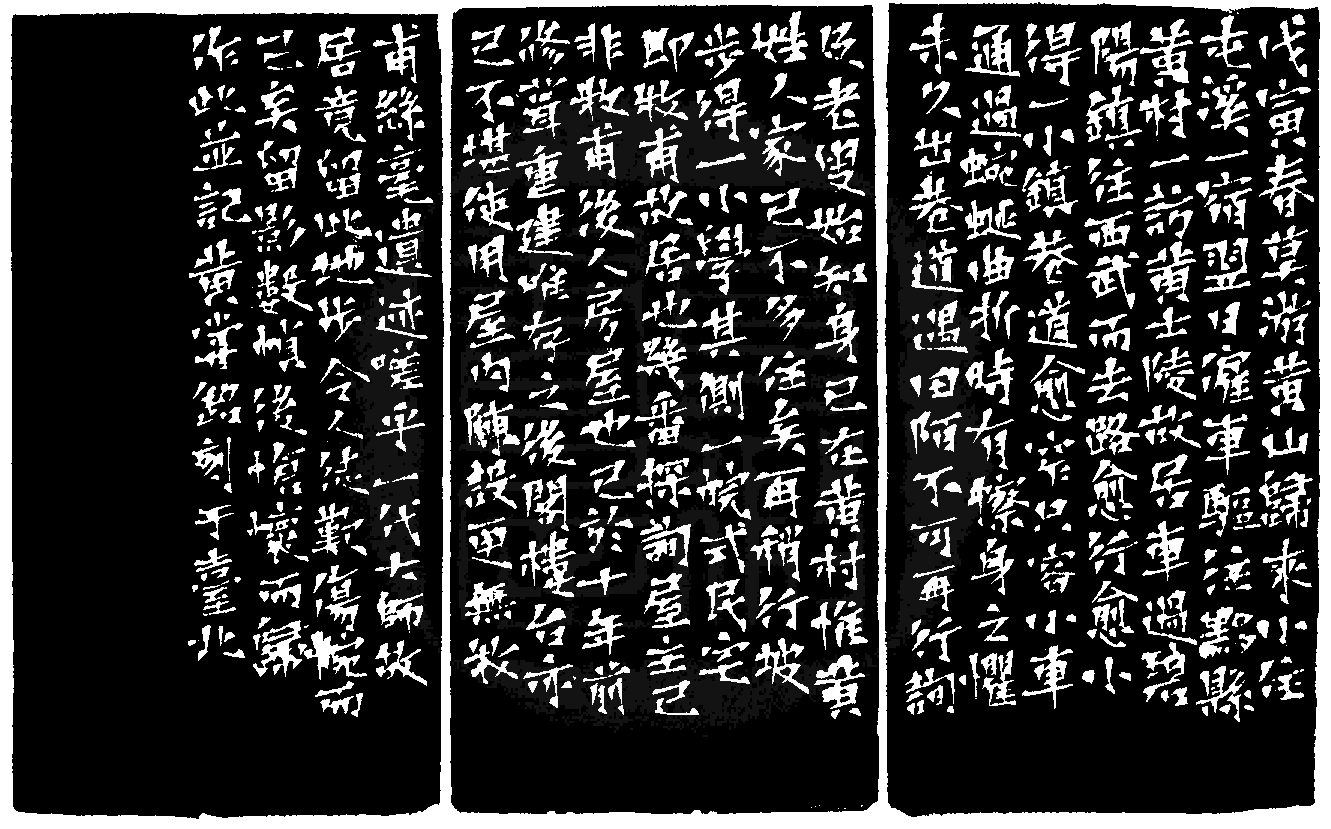 戊寅春莫游黄山歸來小住
屯溪一宿翌日雇車驅往黟縣
黄村一訪黄士陵故居車過碧
陽鎮往西武而去路愈行愈小
得一小鎮巷道愈窄只容小車
通過蜿蜒曲折時有擦身之懼
未久出巷道遇田陌不可再行詢
民老叟始知身已在黄村惟黄
姓人家已不多住矣再稍行坡
步得一小學其側一皖式民宅
即牧甫故居也幾番探詢屋主已
非牧甫後人房屋也已於十年前
修葺重建唯存之後閣樓台亦
已不堪使用屋内陳設更無牧
甫絲毫遺迹嗟乎一代大師故
居竟留此地步令人徒歎傷惋而
已矣留影數幀後愴懷而歸
作此並記黄 銘刻于臺北